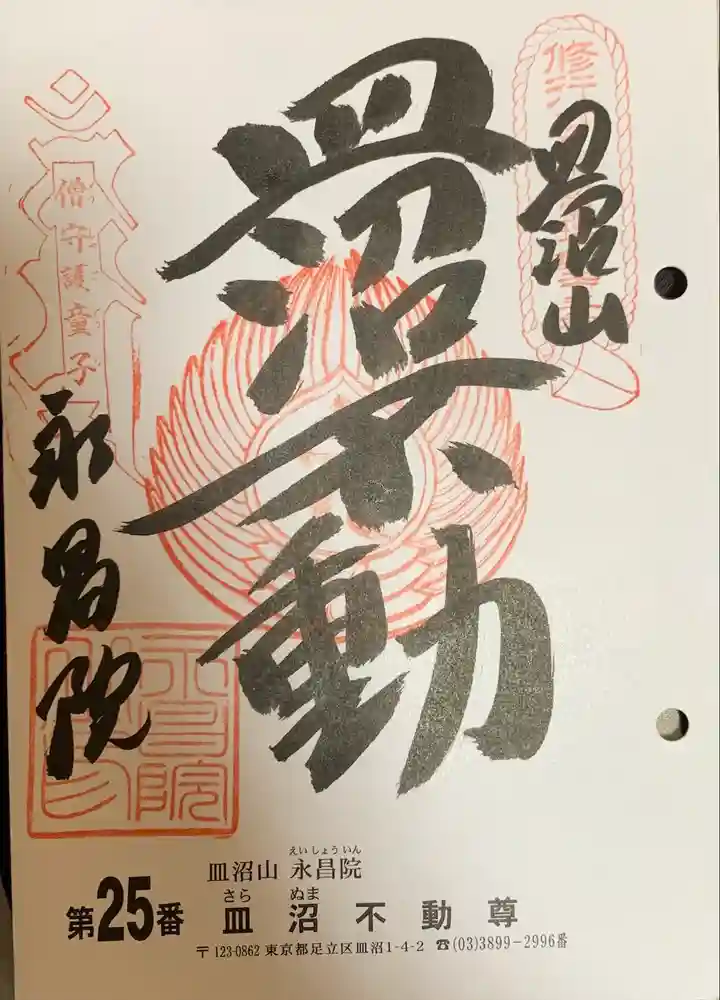 皿沼山
皿沼不動
僧守護童子
永昌院
皿沼山 永昌院
えいしょういん
第25番 皿沼不動尊
さら ぬま
〒123-0862 東京都足立区皿沼1-4-2 ☎(03)3899-2996番